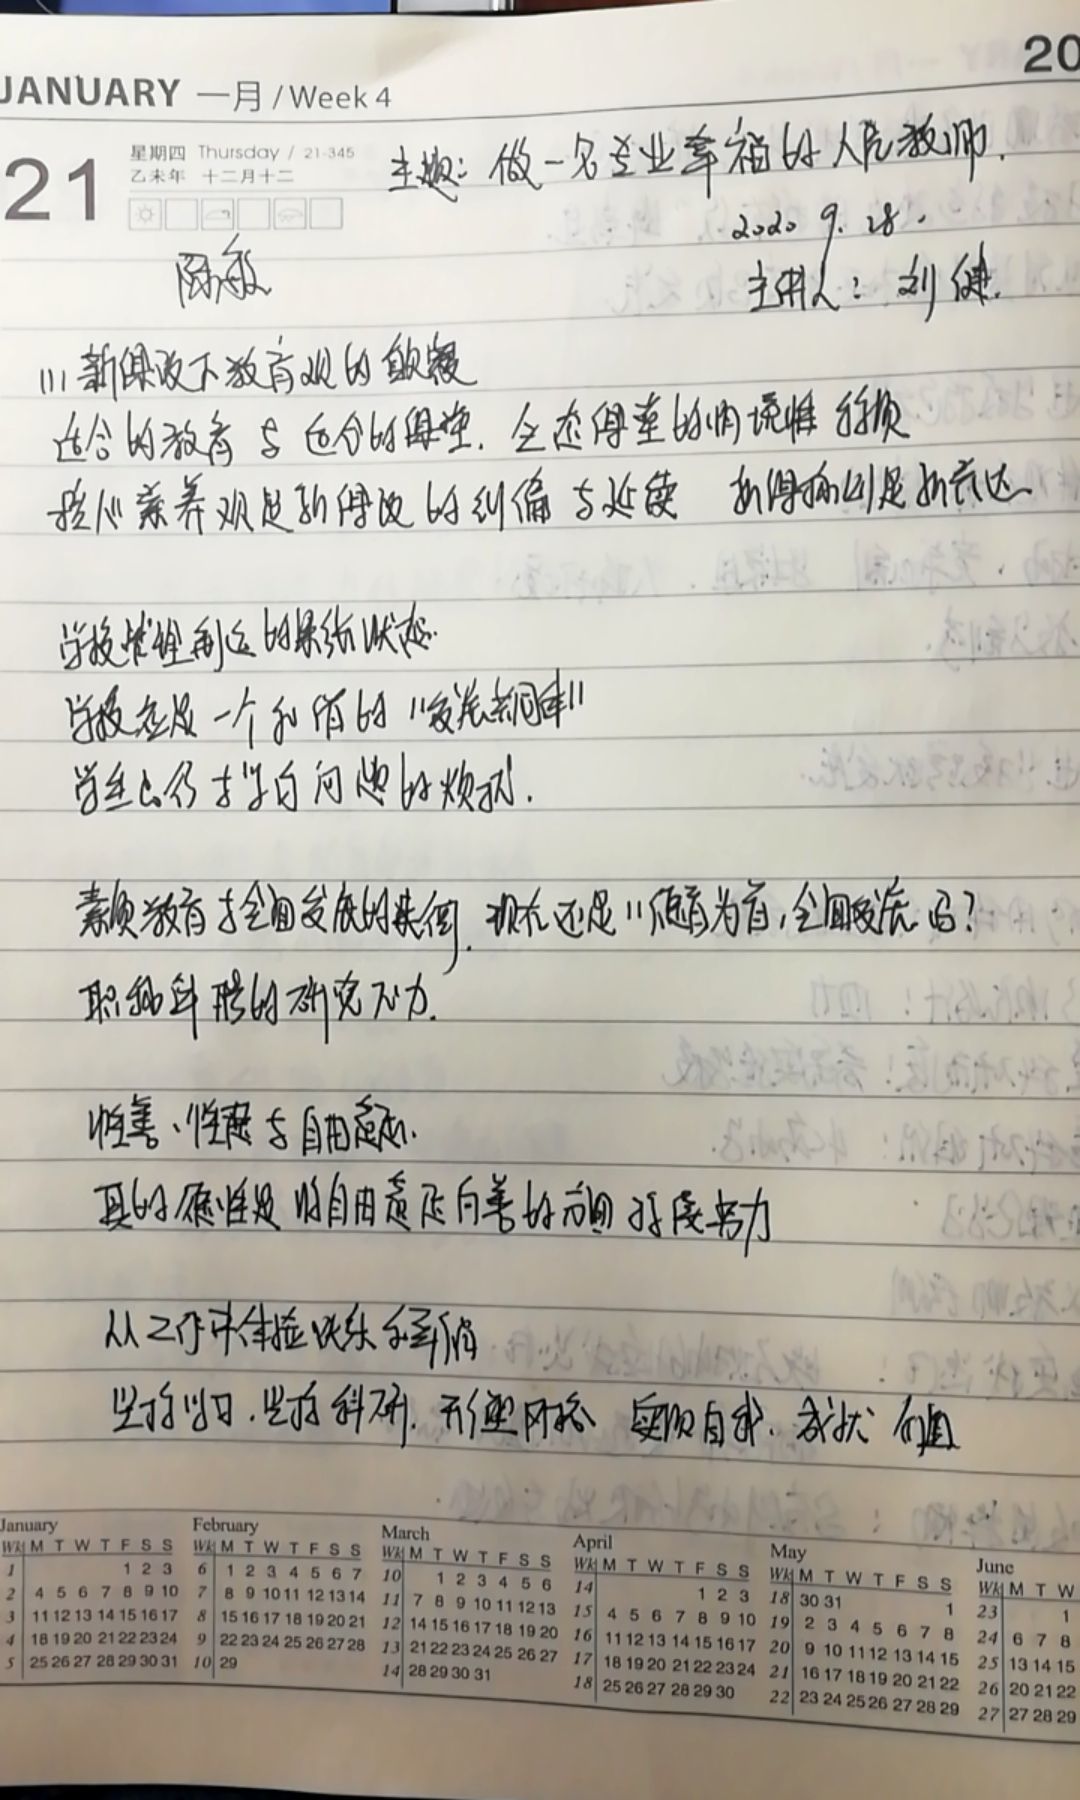 20
JANUARY 一月 / Week 4
21
星期四 Thursday / 21-345
乙未年 十二月十二
主题：做一名专业幸福的人民教师.
2020 9. 28.
陈敏
主讲人：刘健.
(1) 新课改下教育观的
适合的教育与适合的课堂. 生态课堂的内涵
核心素养观是新课改的纠偏与延续 新课标则是新表达
学校管理制造的状态.
学校应是一个和谐的"发展共同体"
学生
素质教育与全面发展的架构. 现在还是"德育为首,全面发展吗?
职称斜聘的研究不力.
性善、性恶与自由意志.
真的德性是将自由意志向善的方面持续努力
从工作中体验快乐和幸福
坚持学习. 坚持科研. 形塑风格 实现自我. 成就价值
January
Wk M T W T F S S
1 1 2 3
2 4 5 6 7 8 9 10
3 11 12 13 14 15 16 17
4 18 19 20 21 22 23 24
5 25 26 27 28 29 30 31
February
Wk M T W T F S S
6 1 2 3 4 5 6 7
7 8 9 10 11 12 13 14
8 15 16 17 18 19 20 21
9 22 23 24 25 26 27 28
10 29
March
Wk M T W T F S S
10 1 2 3 4 5 6
11 7 8 9 10 11 12 13
12 14 15 16 17 18 19 20
13 21 22 23 24 25 26 27
14 28 29 30 31
April
Wk M T W T F S S
14 1 2 3
15 4 5 6 7 8 9 10
16 11 12 13 14 15 16 17
17 18 19 20 21 22 23 24
18 25 26 27 28 29 30
May
Wk M T W T F S S
18 30 31 1
19 2 3 4 5 6 7 8
20 9 10 11 12 13 14 15
21 16 17 18 19 20 21 22
22 23 24 25 26 27 28 29
June
Wk M T W
23 1
24 6 7 8
25 13 14 15
26 20 21 22
27 27 28 29